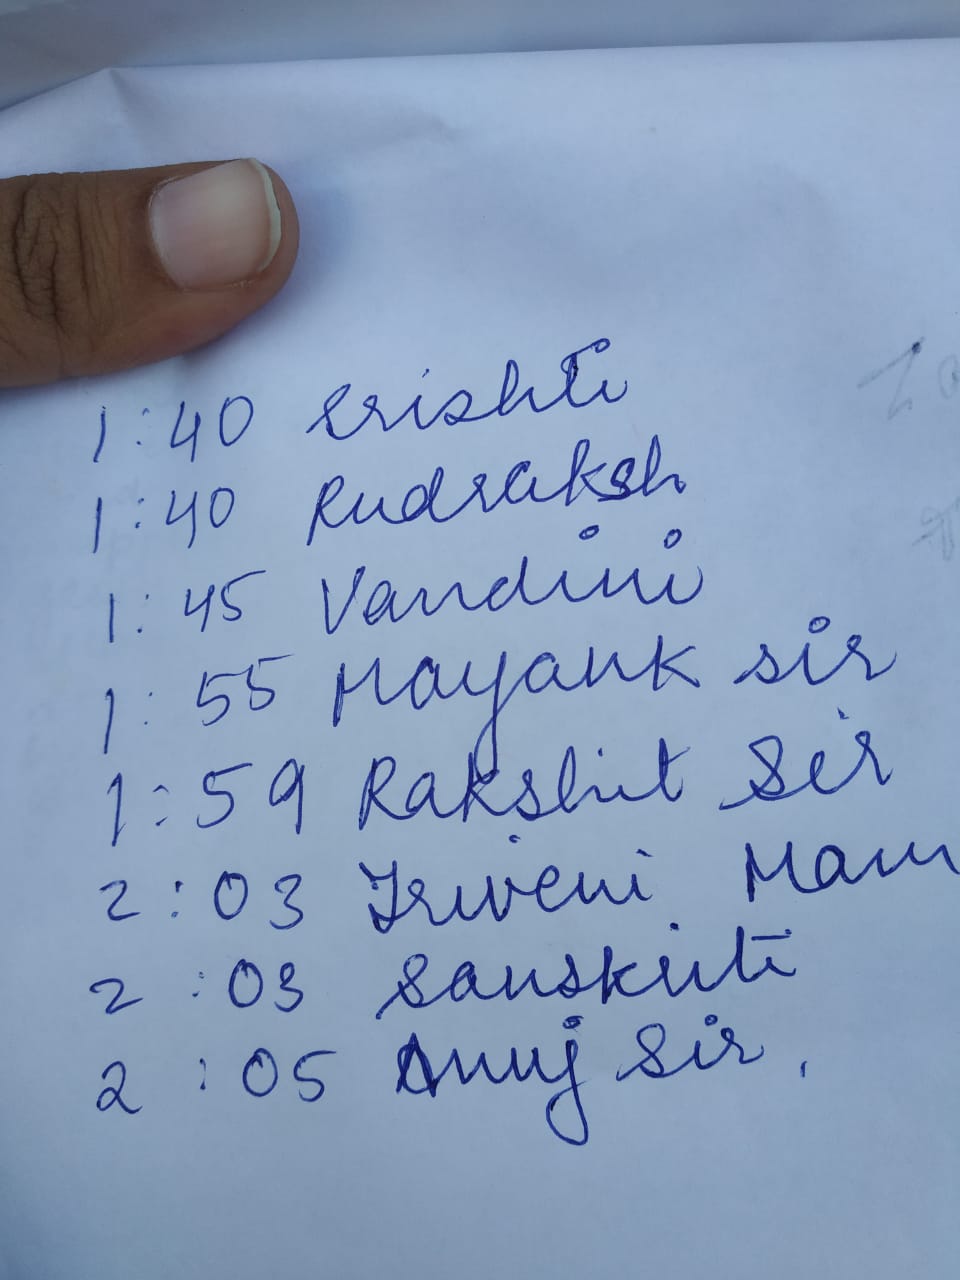 1:40 Srishti
1:40 Rudraksh
1:45 Vandini
1:55 Mayank sir
1:59 Rakshit Sir
2:03 Triveni Mam
2:03 Sanskriti
2:05 Anuj Sir.